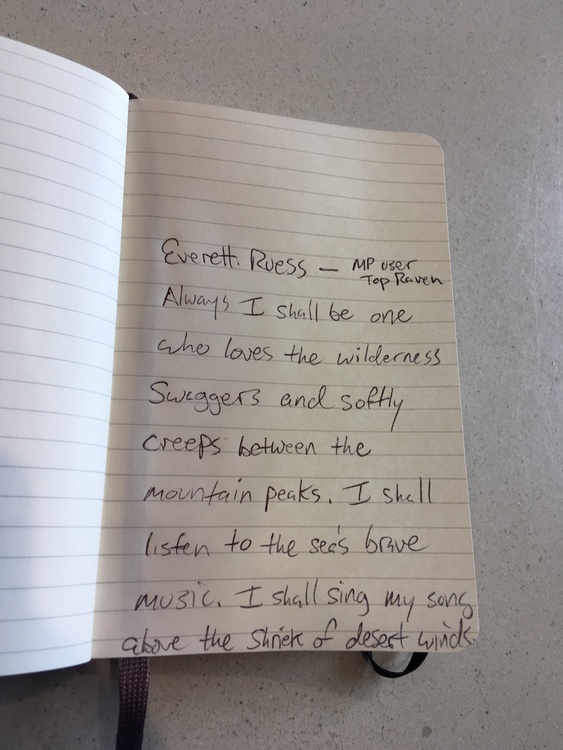 Everett. Ruess — MP user
Top Raven
Always I shall be one
who loves the wilderness
Swaggers and softly
creeps between the
mountain peaks. I shall
listen to the sea's brave
music. I shall sing my song
above the shriek of desert winds.